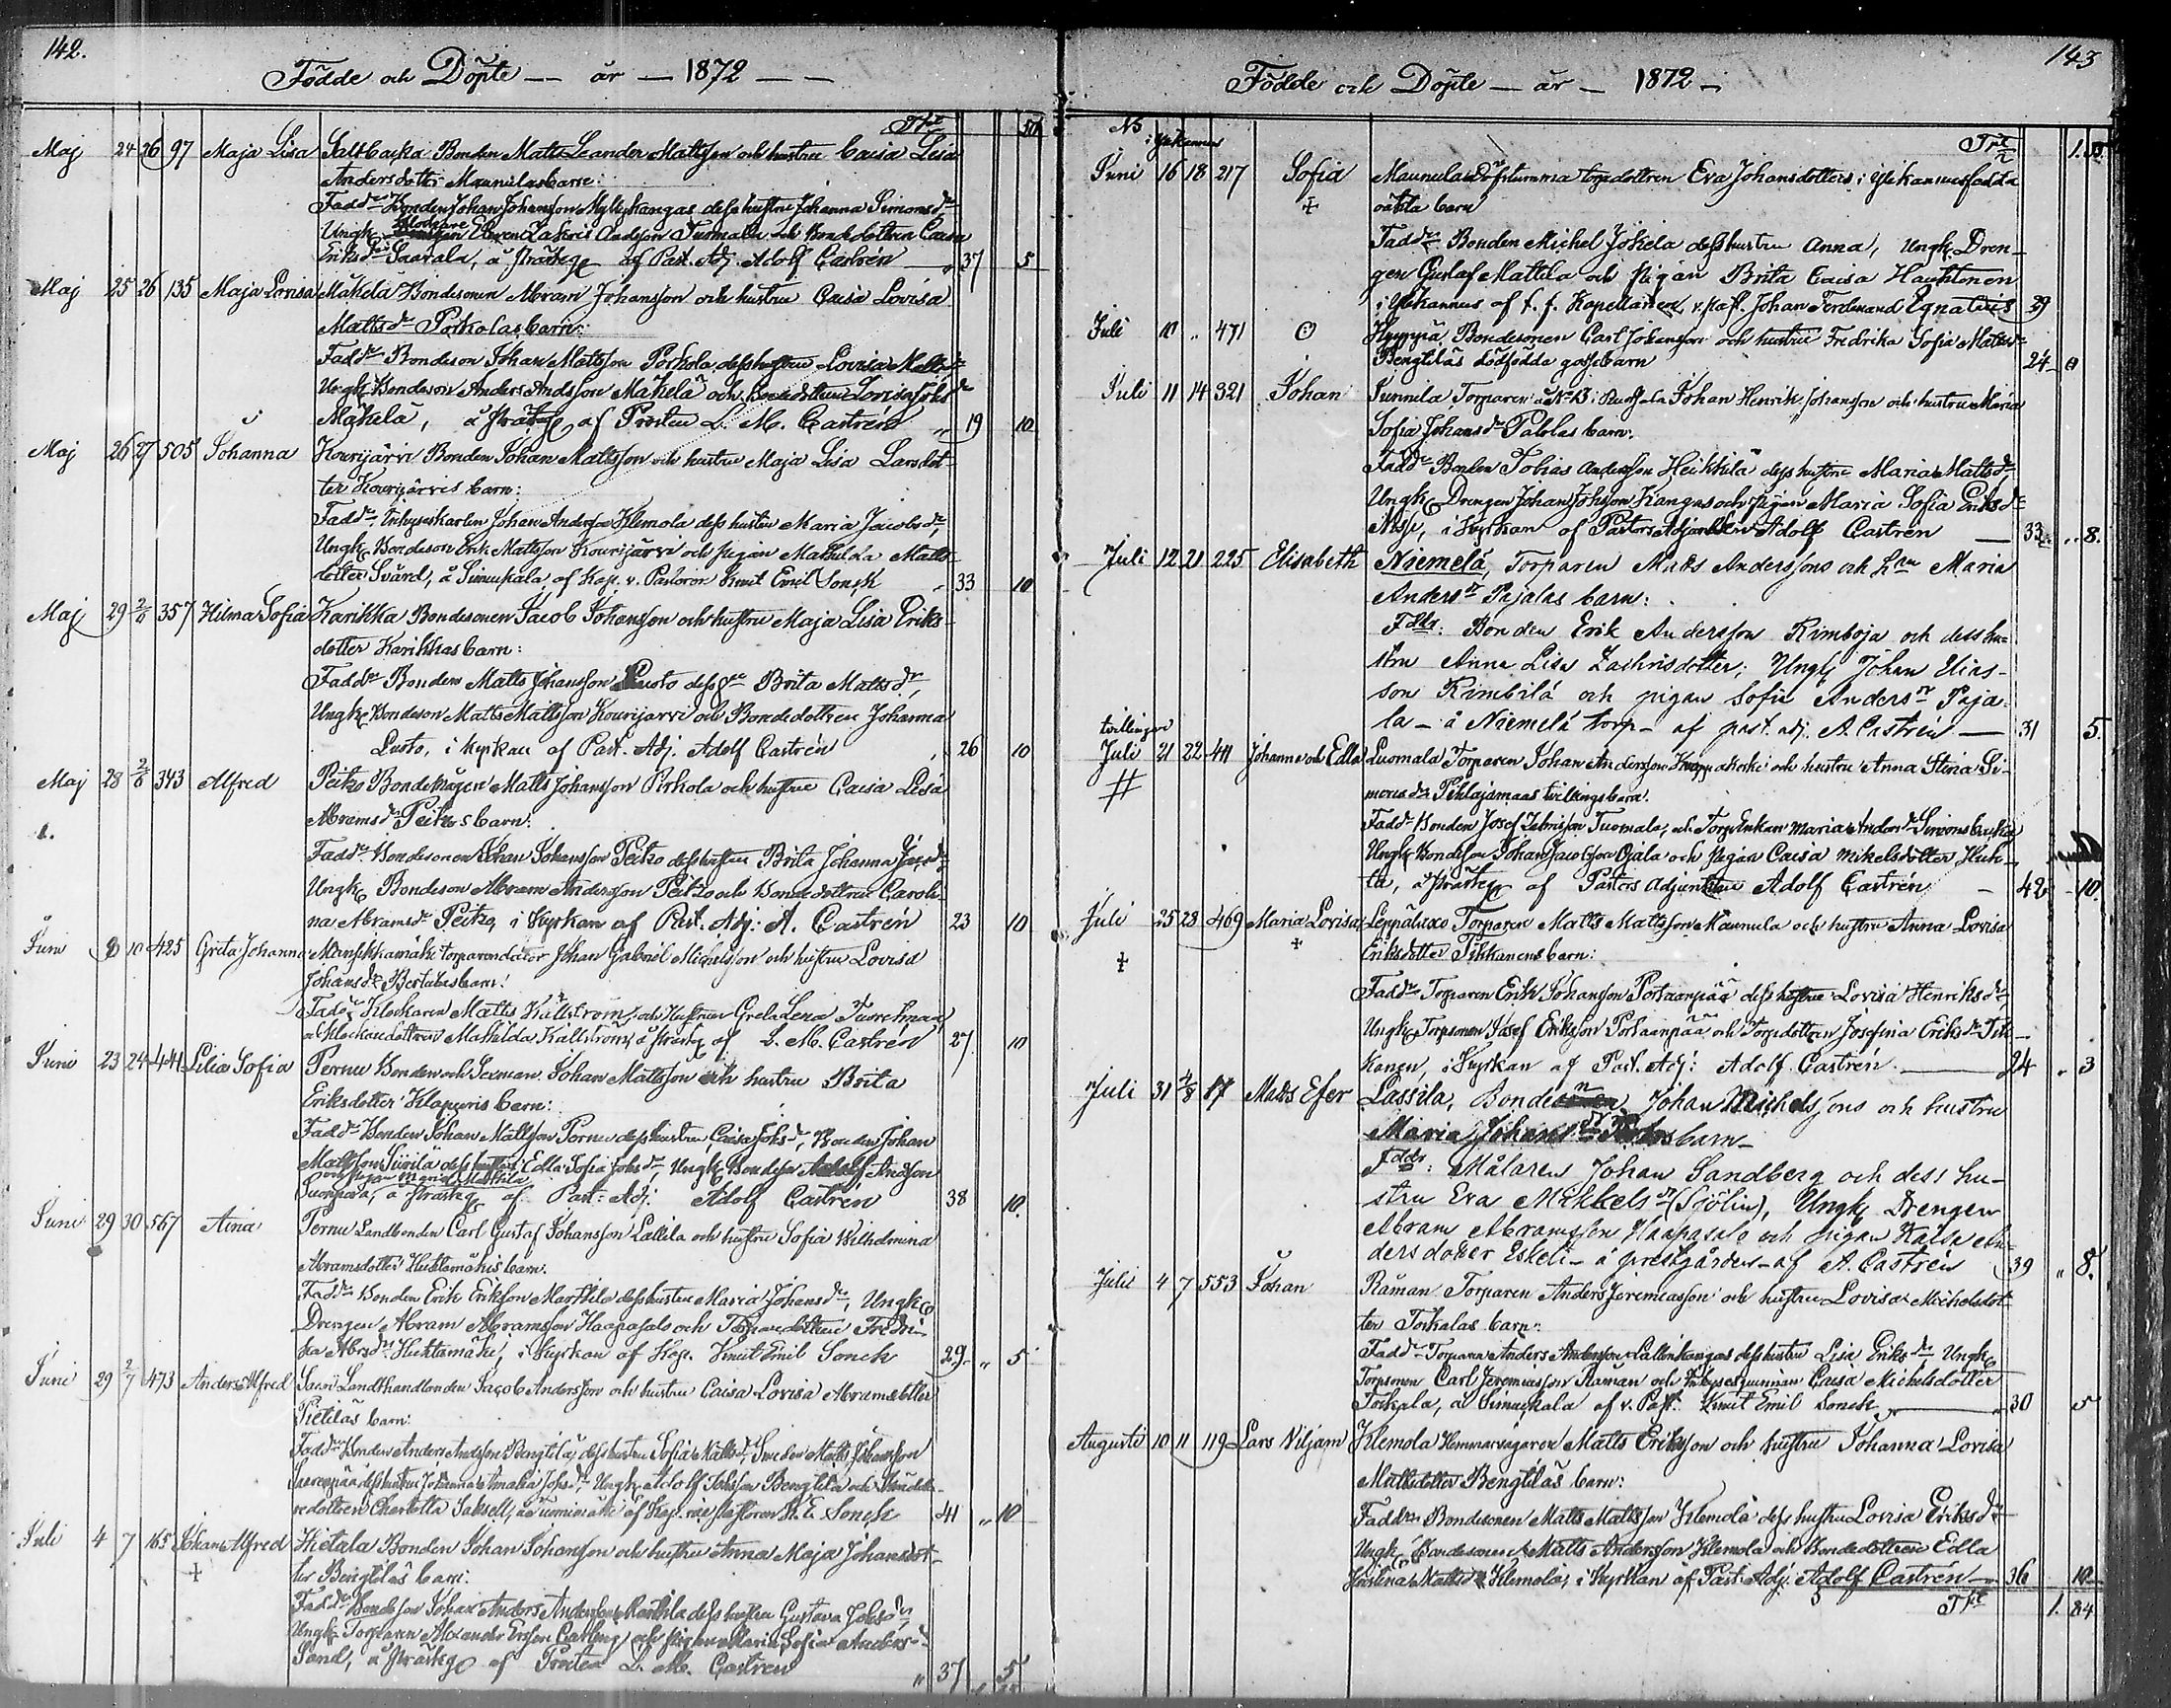 142.
Födde och Döpte — år — 1872 — —
Trt 50
Maj 24 26 97 Maja Lisa Saltbacka Bonden Matts Leander Mattsson och hustru Caisa Lisa
Andersdotter Maunulas barn:
Fadd. Bonden Johan Johansson Myllykangas dess hustru Johanna Simonsdr
Ungk. Zakris Andsson Tuomala och Bondedottren Caisa
Eriksdr Saarala, å prästg. af Past. Adj. Adolf Castrén — 37 5
Maj 25 26 135 Maja Lovisa Mäkelä Bondesonen Abram Johansson och hustru Caisa Lovisa
Mattsdr Porkolas barn:
Fadd. Bondeson Johan Mattsson Porkola dess hustru Lovisa Mattsdr
Ungk. Bondeson Anders Andsson Mäkelä och Bondedottren Lovisa Johsdr
Mäkelä, å prästg. af Prosten L. M. Castrén " 19 10
Maj 26 27 505 Johanna Kourijärvi Bonden Johan Mattsson och hustru Maja Lisa Larsdot-
ter Kourijärvis barn:
Fadd. Inhyseskarlen Johan Andersson Klemola dess hustru Maria Jacobsdr,
Ungk. Bondeson Erik Mattsson Kourijärvi och pigan Mathilda Matts-
dotter Svärd, å Simuskala af Kap. v. Pastoren Knut Emil Sonck " 33 10
Maj 29 2/6 357 Hilma Sofia Karikka Bondesonen Jacob Johansson och hustru Maja Lisa Eriks-
dotter Karikkas barn:
Fadd. Bonden Matts Johansson Lusto dess hu Brita Mattsdr,
Ungk. Bondeson Matts Mattsson Kourijärvi och Bondedottren Johanna
Lusto, i kyrkan af Past. Adj. Adolf Castrén " 26 10
Maj 28 2/6 343 Alfred Peitzo Bondemågen Matts Johansson Pirkola och hustru Caisa Lisa
Abramsdr Peitzos barn:
1.
Fadd. Bondesonen Johan Johansson Peitzo dess hustru Brita Johanna Jacsdr
Ungk. Bondeson Abram Andersson Peitzo och Bondedottren Caroli-
na Abramsdr Peitzo, i kyrkan af Past. Adj. A. Castrén 23 10
Juni 8 10 425 Greta Johanna Mansikkamäki torparendator Johan Gabriel Michelsson och hustru Lovisa
Johansdr Bertulas barn:
Fadd. Klockaren Matts Källström, och Hustrun Greta Lena Tuorelmaa,
o Klockaredottren Mathilda Källström, å prästg. af L. M. Castrén 27 10
Juni 23 24 441 Lilia Sofia Pernu Bonden och Sexman Johan Mattsson och hustru Brita
Eriksdotter Klapuris barn:
Fadd. Bonden Johan Mattsson Pernu dess hustru Caisa Johsdr, Bonden Johan
Mattsson Siirilä dess hustru Edla Sofia Johsdr, Ungk. Bondeson Adolf Andsson
och pigan Maria Mattila
Suonperä, å prästg. af Past. Adj. Adolf Castrén 38 10.
Juni 29 30 567 Aina Pernu Landbonden Carl Gustaf Johansson Lallila och hustru Sofia Wilhelmina
Abramsdotter Huhtamäkis barn:
Fadd. Bonden Erik Eriksson Marttila dess hustru Maria Johansdr, Ungk.
Drengen Abram Abramsson Haapasalo och Torparedottren Fredri-
ka Abrsdr Huhtamäki, i kyrkan af Kap. Knut Emil Sonck 29 " 5
Juni 29 2/7 473 Anders Alfred Saari Landthandlanden Jacob Andersson och hustru Caisa Lovisa Abramsdotter
Pietiläs barn:
Fadd. Bonden Anders Andsson Bengtilä, dess hustru Sofia Mattsdr, Smeden Matts Johansson
dess hustru Johanna Amalia Johsdr, Ungk. Adolf Johsson Bengtilä och
redottren Charlotta af Kap. vice pastoren K. E. Sonck 41 " 10
Juli 4 7 165 Johan Alfred Hietala Bonden Johan Johansson och hustru Anna Maja Johansdot-
+ ter Bengtiläs barn:
Fadd. Bondeson Johan Anders Andersson Marttila dess hustru Gustava Johsdr,
Ungk. Torparen Alexander Ersson Carlberg och pigan Maria Sofia Andersdr
Sand, å prästg. af Prosten L. M. Castrén " 37 5
143
Födde och Döpte — år — 1872 —
No i Ylikannus Trt 1.
Juni 16 18 217 Sofia Maunula Döfstumma torpdottren Eva Johansdotters i Ylikannus födda
+ oäkta barn
Fadd. Bonden Michel Jokela dess hustru Anna, Ungk. Dren-
gen Gustaf Mattila och pigan Brita Caisa Hauhtonen
i Ylikannus af t. f. Kapellanen, v. past. Johan Ferdinand Egnatius 29
Juli 10 " 471 Hyyppä Bondesonen Carl Johansson och hustru Fredrika Sofia Mattsdr
Bengtiläs dödfödda gossebarn 24 0
Juli 11 14 321 Johan Junnila Torparen Johan Henrik Johansson och hustru Maria
Sofia Johansdr Pahlas barn:
Fadd. Bonden Tobias Andersson Heikkilä dess hustru Maria Mattsdr,
Ungk. Drengen Johan Johsson Kangas och pigan Maria Sofia Eriksdr
i kyrkan af Pastors Adjunkten Adolf Castrén — 33 " 8.
Juli 12 21 225 Elisabeth Niemelä, Torparen Matts Anderssons och hru Maria
Andersdr Pajalas barn:
Fddr: Bonden Erik Andersson Rimboja och dess hu-
stru Anna Lisa Zachrisdotter; Ungk. Johan Elias-
son Rimbilä och pigan Sofia Andersdr Paja-
la — å Niemelä torp — af past. adj. A. Castrén — 31 5.
tvillingar
Juli 21 22 411 Johanna och Edla Luomala Torparen Johan Andersson och hustru Anna Stina Si-
# monsdr Pihlajamaas tvillingsbarn.
Fadd. Bonden Josef Zakrisson Tuomala, och Torp Enkan Maria Andersdr Simonsbacka
Ungk. Bondeson Johan Jacobsson Ojala och pigan Caisa Mikelsdotter Huh-
ta, å prästg. af Pastors Adjunkten Adolf Castrén — 42 10.
Juli 25 28 469 Maria Lovisa Leppäluxo Torparen Matts Mattsson Maunula och hustru Anna Lovisa
+ + Eriksdotter Tikkanens barn:
Fadd. Torparen Erik Johansson Portaanpää dess hustru Lovisa Henriksdr
Ungk. Torpsonen Josef Eriksson Portaanpää och Torpdottren Josefina Eriksdr Tik-
kanen, i kyrkan af Past. Adj: Adolf Castrén — 24 " 3
Juli 31 4/8 17 Matts Efer Lassila, Bonden Johan Michelssons och hustru
Maria Johansdr barn —
Fddr: Målaren Johan Sandberg och dess hu-
stru Eva Mikkelsdr (Sjölin), Ungk. Drengen
Abram Abramsson Haapasalo och pigan Kajsa An-
dersdotter Eskeli — å prestgården — af A. Castrén 39 " 8.
Juli 4 7 553 Johan Råman Torparen Anders Jeremiasson och hustru Lovisa Michelsdot-
ter Torkalas barn:
Fadd. Torparen Anders Andersson Kallinkangas dess hustru Lisa Eriksdr Ungk.
Torpsonen Carl Jeremiasson Råman och Inhysesqvinnan Caisa Michelsdotter
Torkala, å Simuskala af v. Past. Knut Emil Sonck — 30 5
Augusti 10 11 119 Lars Viljam Klemola Hemmansägaren Matts Eriksson och hustru Johanna Lovisa
Mattsdotter Bengtiläs barn:
Fadd. Bondesonen Matts Mattsson Klemola dess hustru Lovisa Eriksdr
Ungk. Bondesonen Matts Andersson Klemola och Bondedottren Edla
Kristina Mattsdr Klemola, i kyrkan af Past. Adj: Adolf Castrén — 36 10
Trt 1. 84